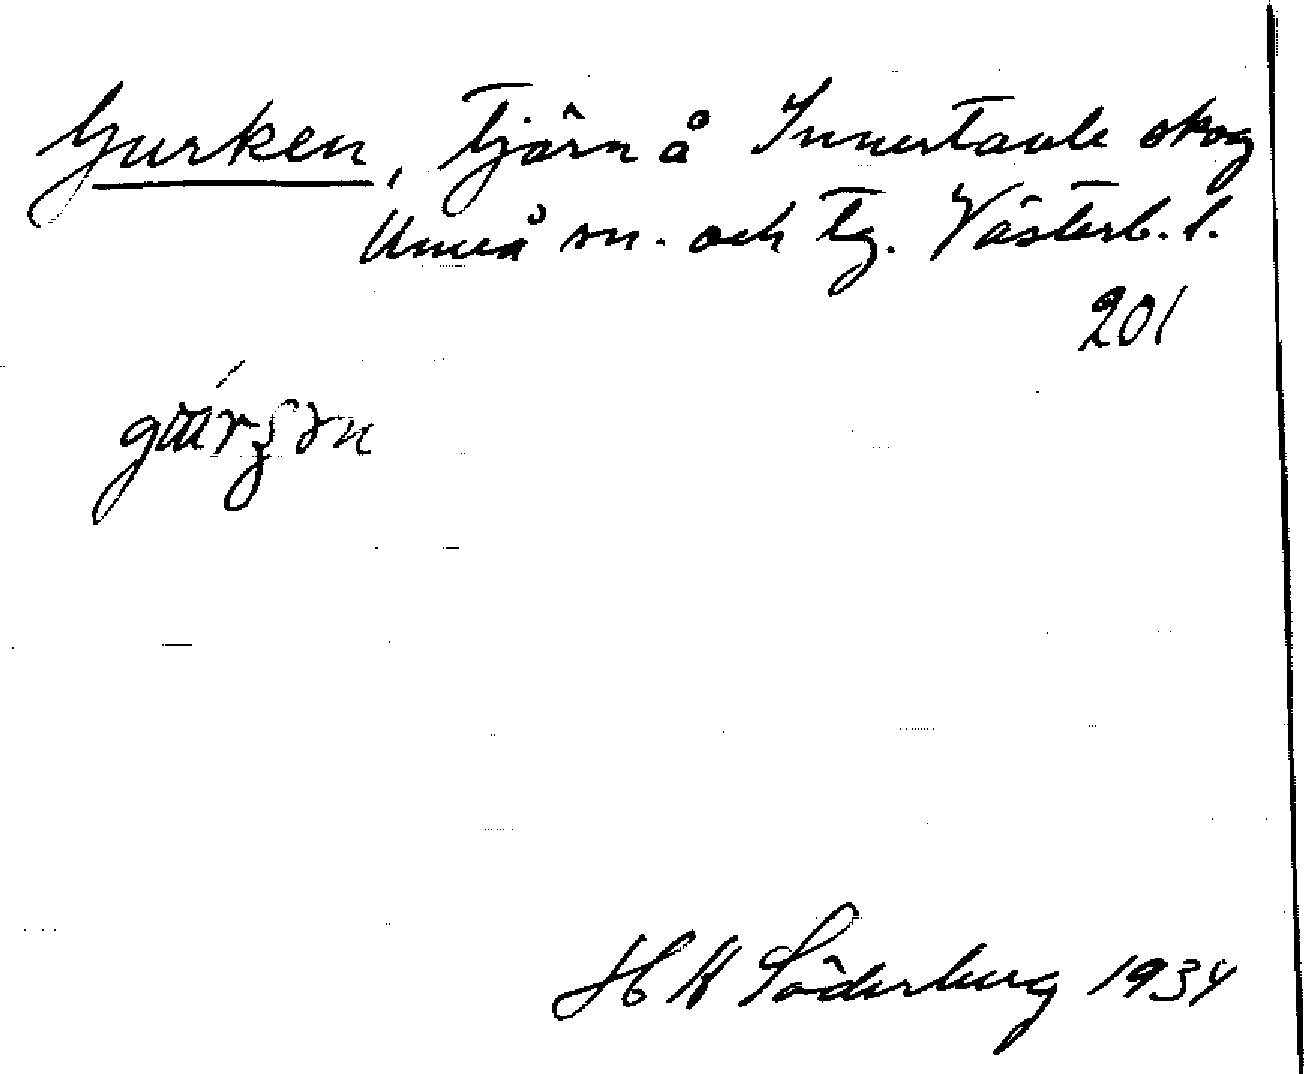 Gurken, Tjärn å Innertavle skog
Umeå sn. och tg. Västerb. l.
201
H K Söderberg 1934